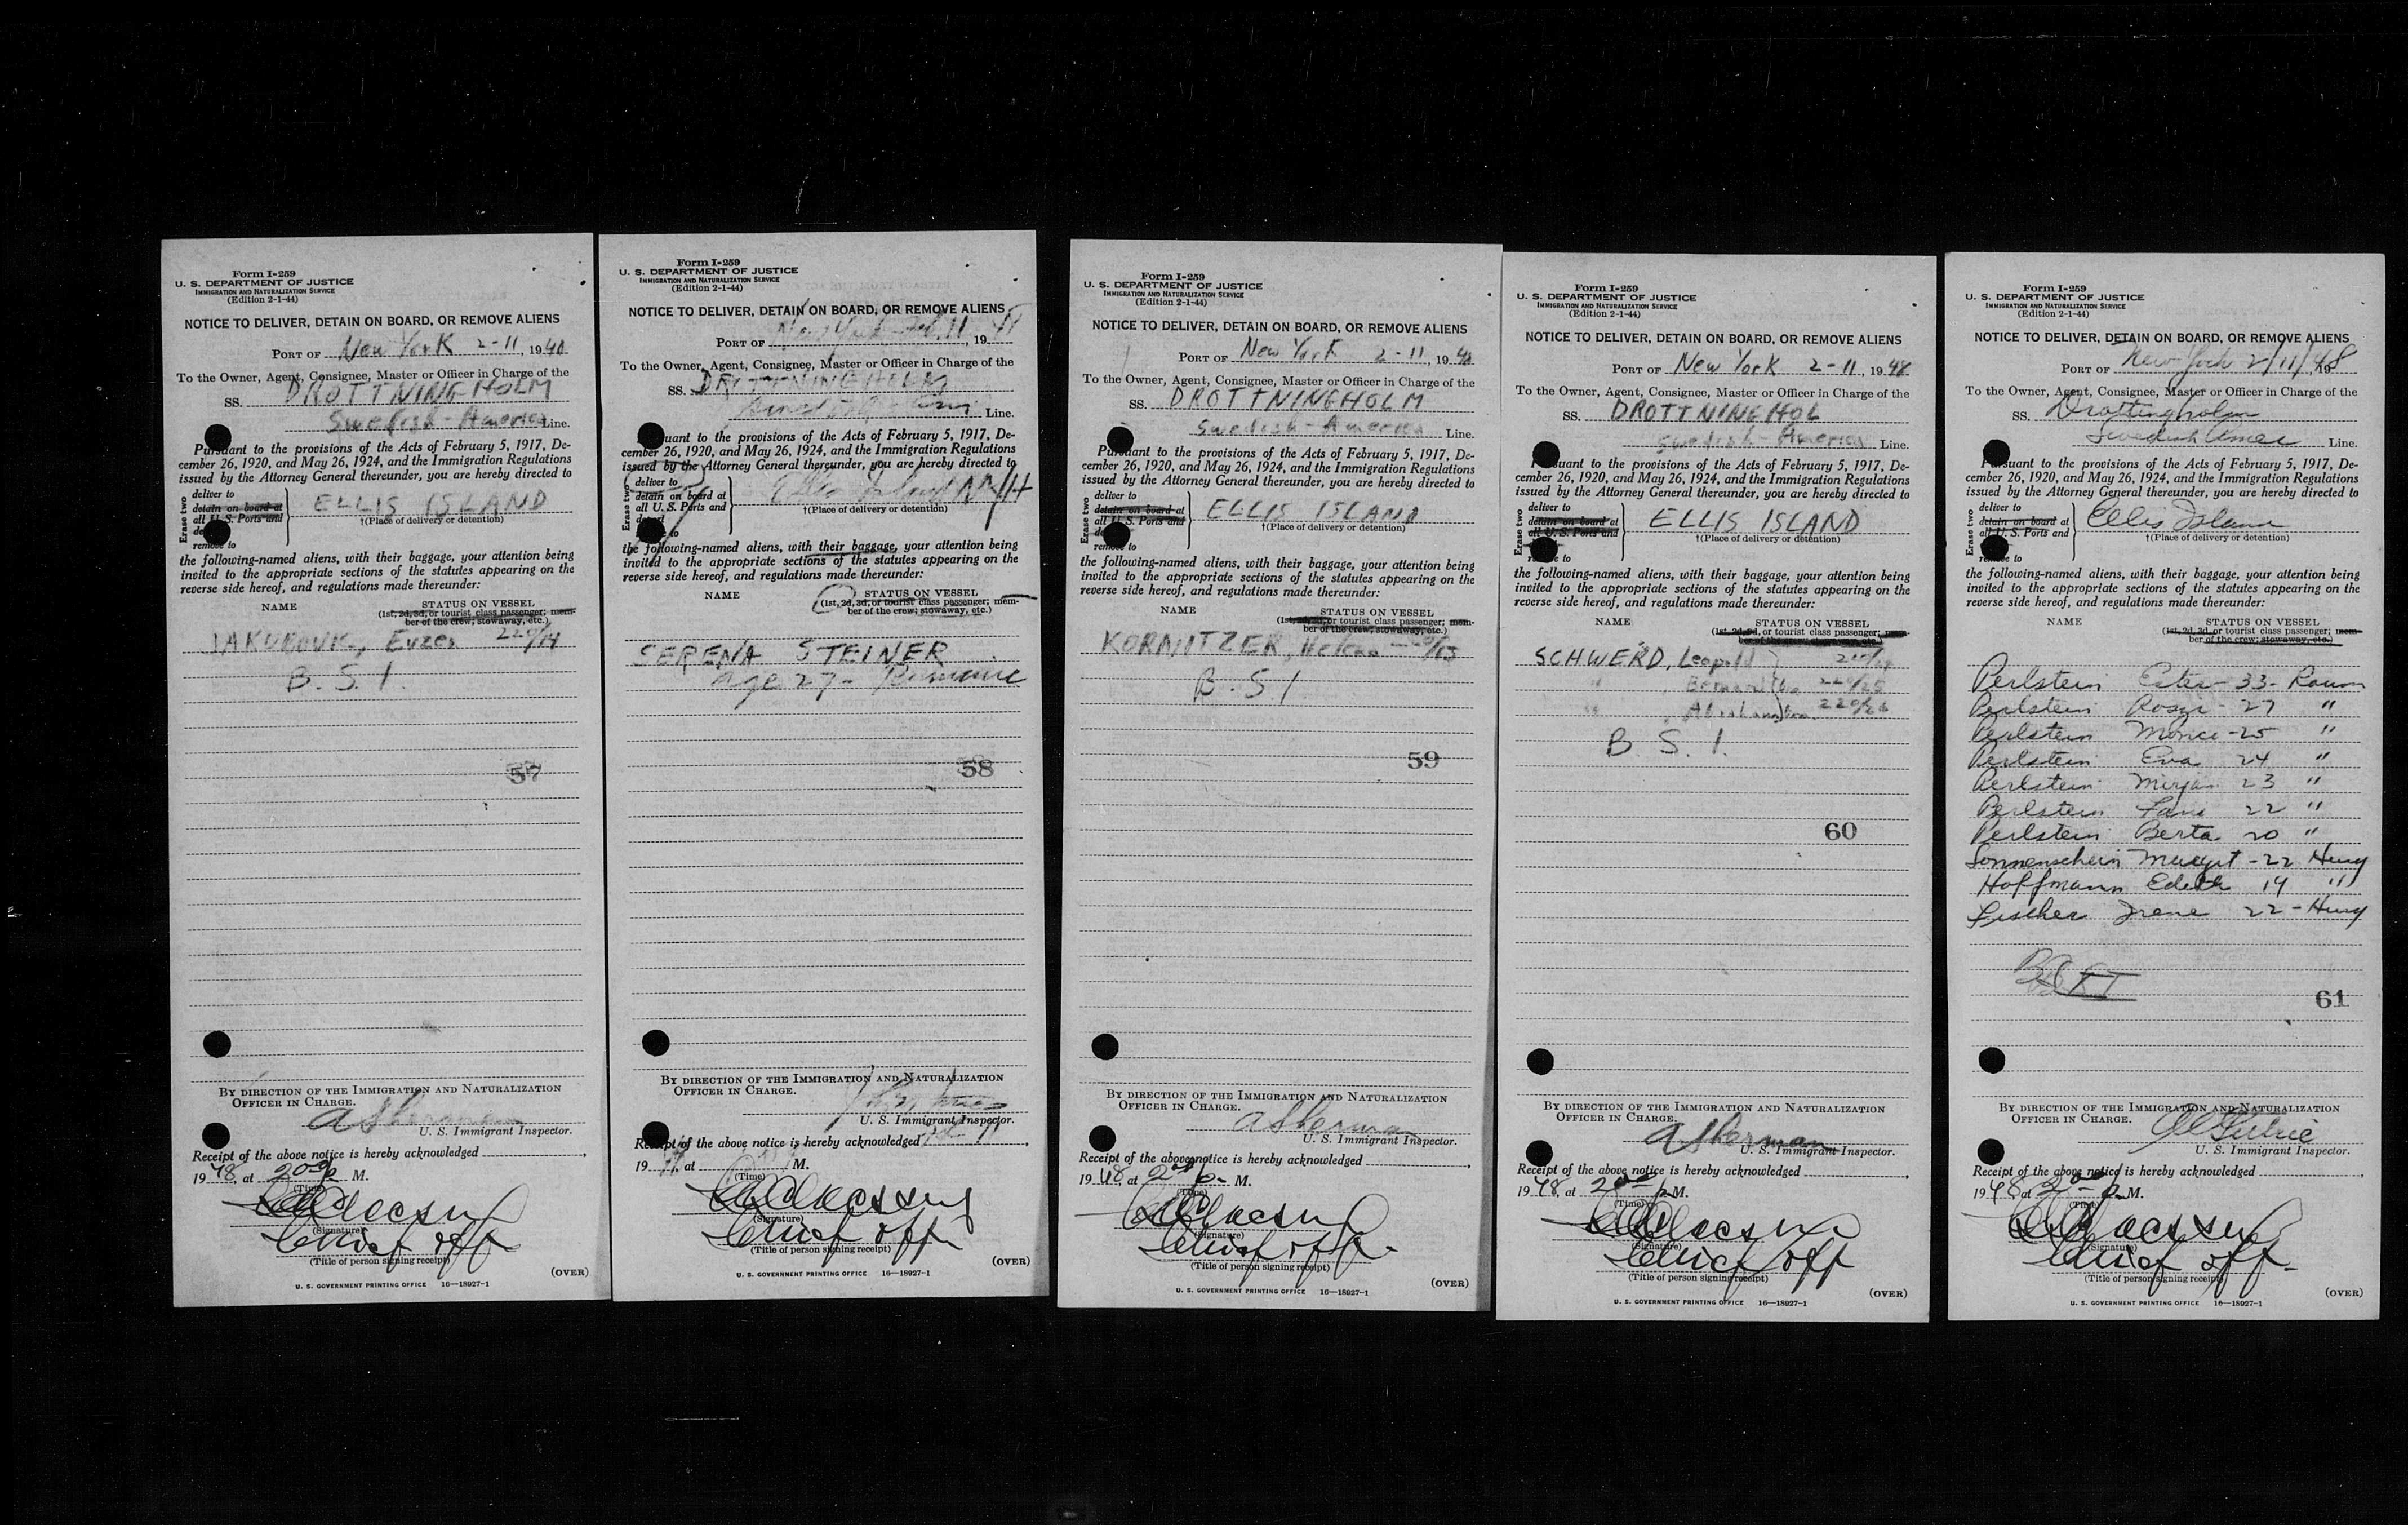 Form I-259
U. S. DEPARTMENT OF JUSTICE
IMMIGRATION AND NATURALIZATION SERVICE
(Edition 2-1-44)
NOTICE TO DELIVER, DETAIN ON BOARD, OR REMOVE ALIENS
PORT OF New York 2-11, 1948
To the Owner, Agent, Consignee, Master or Officer in Charge of the
SS. DROTTNINGHOLM
Swedish-America Line.
Pursuant to the provisions of the Acts of February 5, 1917, De-
cember 26, 1920, and May 26, 1924, and the Immigration Regulations
issued by the Attorney General thereunder, you are hereby directed to
Erase two
deliver to
detain on board at
all U. S. Ports and
remove to
ELLIS ISLAND
†(Place of delivery or detention)
the following-named aliens, with their baggage, your attention being
invited to the appropriate sections of the statutes appearing on the
reverse side hereof, and regulations made thereunder:
NAME STATUS ON VESSEL
(1st, 2d, 3d, or tourist class passenger; mem-
ber of the crew; stowaway, etc.)
220/14
B. S. I.
57
BY DIRECTION OF THE IMMIGRATION AND NATURALIZATION
OFFICER IN CHARGE.
A Sherman
U. S. Immigrant Inspector.
Receipt of the above notice is hereby acknowledged
1948, at 2 00 p. M.
(Time)
(Signature)
Chief off
(Title of person signing receipt)
(OVER)
U. S. GOVERNMENT PRINTING OFFICE 16—18927-1
Form I-259
U. S. DEPARTMENT OF JUSTICE
IMMIGRATION AND NATURALIZATION SERVICE
(Edition 2-1-44)
NOTICE TO DELIVER, DETAIN ON BOARD, OR REMOVE ALIENS
New York Feb. 11
PORT OF , 19
To the Owner, Agent, Consignee, Master or Officer in Charge of the
SS. DROTTNINGHOLM
Line.
Pursuant to the provisions of the Acts of February 5, 1917, De-
cember 26, 1920, and May 26, 1924, and the Immigration Regulations
issued by the Attorney General thereunder, you are hereby directed to
Erase two
deliver to
detain on board at
all U. S. Ports and
to
Ellis Island NYH
†(Place of delivery or detention)
the following-named aliens, with their baggage, your attention being
invited to the appropriate sections of the statutes appearing on the
reverse side hereof, and regulations made thereunder:
NAME STATUS ON VESSEL
(1st, 2d, 3d, or tourist class passenger; mem-
ber of the crew; stowaway, etc.)
SERENA STEINER
age 27 -
58
BY DIRECTION OF THE IMMIGRATION AND NATURALIZATION
OFFICER IN CHARGE.
U. S. Immigrant Inspector.
Receipt of the above notice is hereby acknowledged
19 , at M.
(Time)
(Signature)
Chief off
(Title of person signing receipt)
(OVER)
U. S. GOVERNMENT PRINTING OFFICE 16—18927-1
Form I-259
U. S. DEPARTMENT OF JUSTICE
IMMIGRATION AND NATURALIZATION SERVICE
(Edition 2-1-44)
NOTICE TO DELIVER, DETAIN ON BOARD, OR REMOVE ALIENS
PORT OF New York 2-11, 1948
To the Owner, Agent, Consignee, Master or Officer in Charge of the
SS. DROTTNINGHOLM
Swedish-America Line.
Pursuant to the provisions of the Acts of February 5, 1917, De-
cember 26, 1920, and May 26, 1924, and the Immigration Regulations
issued by the Attorney General thereunder, you are hereby directed to
Erase two
deliver to
detain on board at
all U. S. Ports and
remove to
ELLIS ISLAND
†(Place of delivery or detention)
the following-named aliens, with their baggage, your attention being
invited to the appropriate sections of the statutes appearing on the
reverse side hereof, and regulations made thereunder:
NAME STATUS ON VESSEL
(1st, 2d, 3d, or tourist class passenger; mem-
ber of the crew; stowaway, etc.)
KORNITZER, Helena
B. S. I
59
BY DIRECTION OF THE IMMIGRATION AND NATURALIZATION
OFFICER IN CHARGE.
A Sherman
U. S. Immigrant Inspector.
Receipt of the above notice is hereby acknowledged
1948, at 2 00 p. M.
(Time)
(Signature)
Chief off.
(Title of person signing receipt)
(OVER)
U. S. GOVERNMENT PRINTING OFFICE 16—18927-1
Form I-259
U. S. DEPARTMENT OF JUSTICE
IMMIGRATION AND NATURALIZATION SERVICE
(Edition 2-1-44)
NOTICE TO DELIVER, DETAIN ON BOARD, OR REMOVE ALIENS
PORT OF New York 2-11, 1948
To the Owner, Agent, Consignee, Master or Officer in Charge of the
SS. DROTTNINGHOL
Swedish-America Line.
Pursuant to the provisions of the Acts of February 5, 1917, De-
cember 26, 1920, and May 26, 1924, and the Immigration Regulations
issued by the Attorney General thereunder, you are hereby directed to
Erase two
deliver to
detain on board at
all U. S. Ports and
remove to
ELLIS ISLAND
†(Place of delivery or detention)
the following-named aliens, with their baggage, your attention being
invited to the appropriate sections of the statutes appearing on the
reverse side hereof, and regulations made thereunder:
NAME STATUS ON VESSEL
(1st, 2d, 3d, or tourist class passenger; mem-
ber of the crew; stowaway, etc.)
SCHWERD, Leopold
" 220/25
" 220/26
B. S. I.
60
BY DIRECTION OF THE IMMIGRATION AND NATURALIZATION
OFFICER IN CHARGE.
A Sherman
U. S. Immigrant Inspector.
Receipt of the above notice is hereby acknowledged
1948, at 2 00 p M.
(Time)
(Signature)
Chief off
(Title of person signing receipt)
(OVER)
U. S. GOVERNMENT PRINTING OFFICE 16—18927-1
Form I-259
U. S. DEPARTMENT OF JUSTICE
IMMIGRATION AND NATURALIZATION SERVICE
(Edition 2-1-44)
NOTICE TO DELIVER, DETAIN ON BOARD, OR REMOVE ALIENS
PORT OF New York 2/11/48
To the Owner, Agent, Consignee, Master or Officer in Charge of the
SS. Drottingholm
Swedish Amer Line.
Pursuant to the provisions of the Acts of February 5, 1917, De-
cember 26, 1920, and May 26, 1924, and the Immigration Regulations
issued by the Attorney General thereunder, you are hereby directed to
Erase two
deliver to
detain on board at
all U. S. Ports and
remove to
Ellis Island
†(Place of delivery or detention)
the following-named aliens, with their baggage, your attention being
invited to the appropriate sections of the statutes appearing on the
reverse side hereof, and regulations made thereunder:
NAME STATUS ON VESSEL
(1st, 2d, 3d, or tourist class passenger; mem-
ber of the crew; stowaway, etc.)
Perlstein Ester - 33 - Roum
Perlstein Roszi - 27 "
Perlstein - 25 "
Perlstein Eva 24 "
Perlstein Mirjam 23 "
Perlstein Fani 22 "
Perlstein Berta 20 "
Sonnenschein Margit - 22 Hung
Hoffmann Edith 14 "
Fischer Irene 22 - Hung
61
BY DIRECTION OF THE IMMIGRATION AND NATURALIZATION
OFFICER IN CHARGE.
U. S. Immigrant Inspector.
Receipt of the above notice is hereby acknowledged
1948 at 2 00 p. M.
(Time)
(Signature)
Chief off.
(Title of person signing receipt)
(OVER)
U. S. GOVERNMENT PRINTING OFFICE 16—18927-1